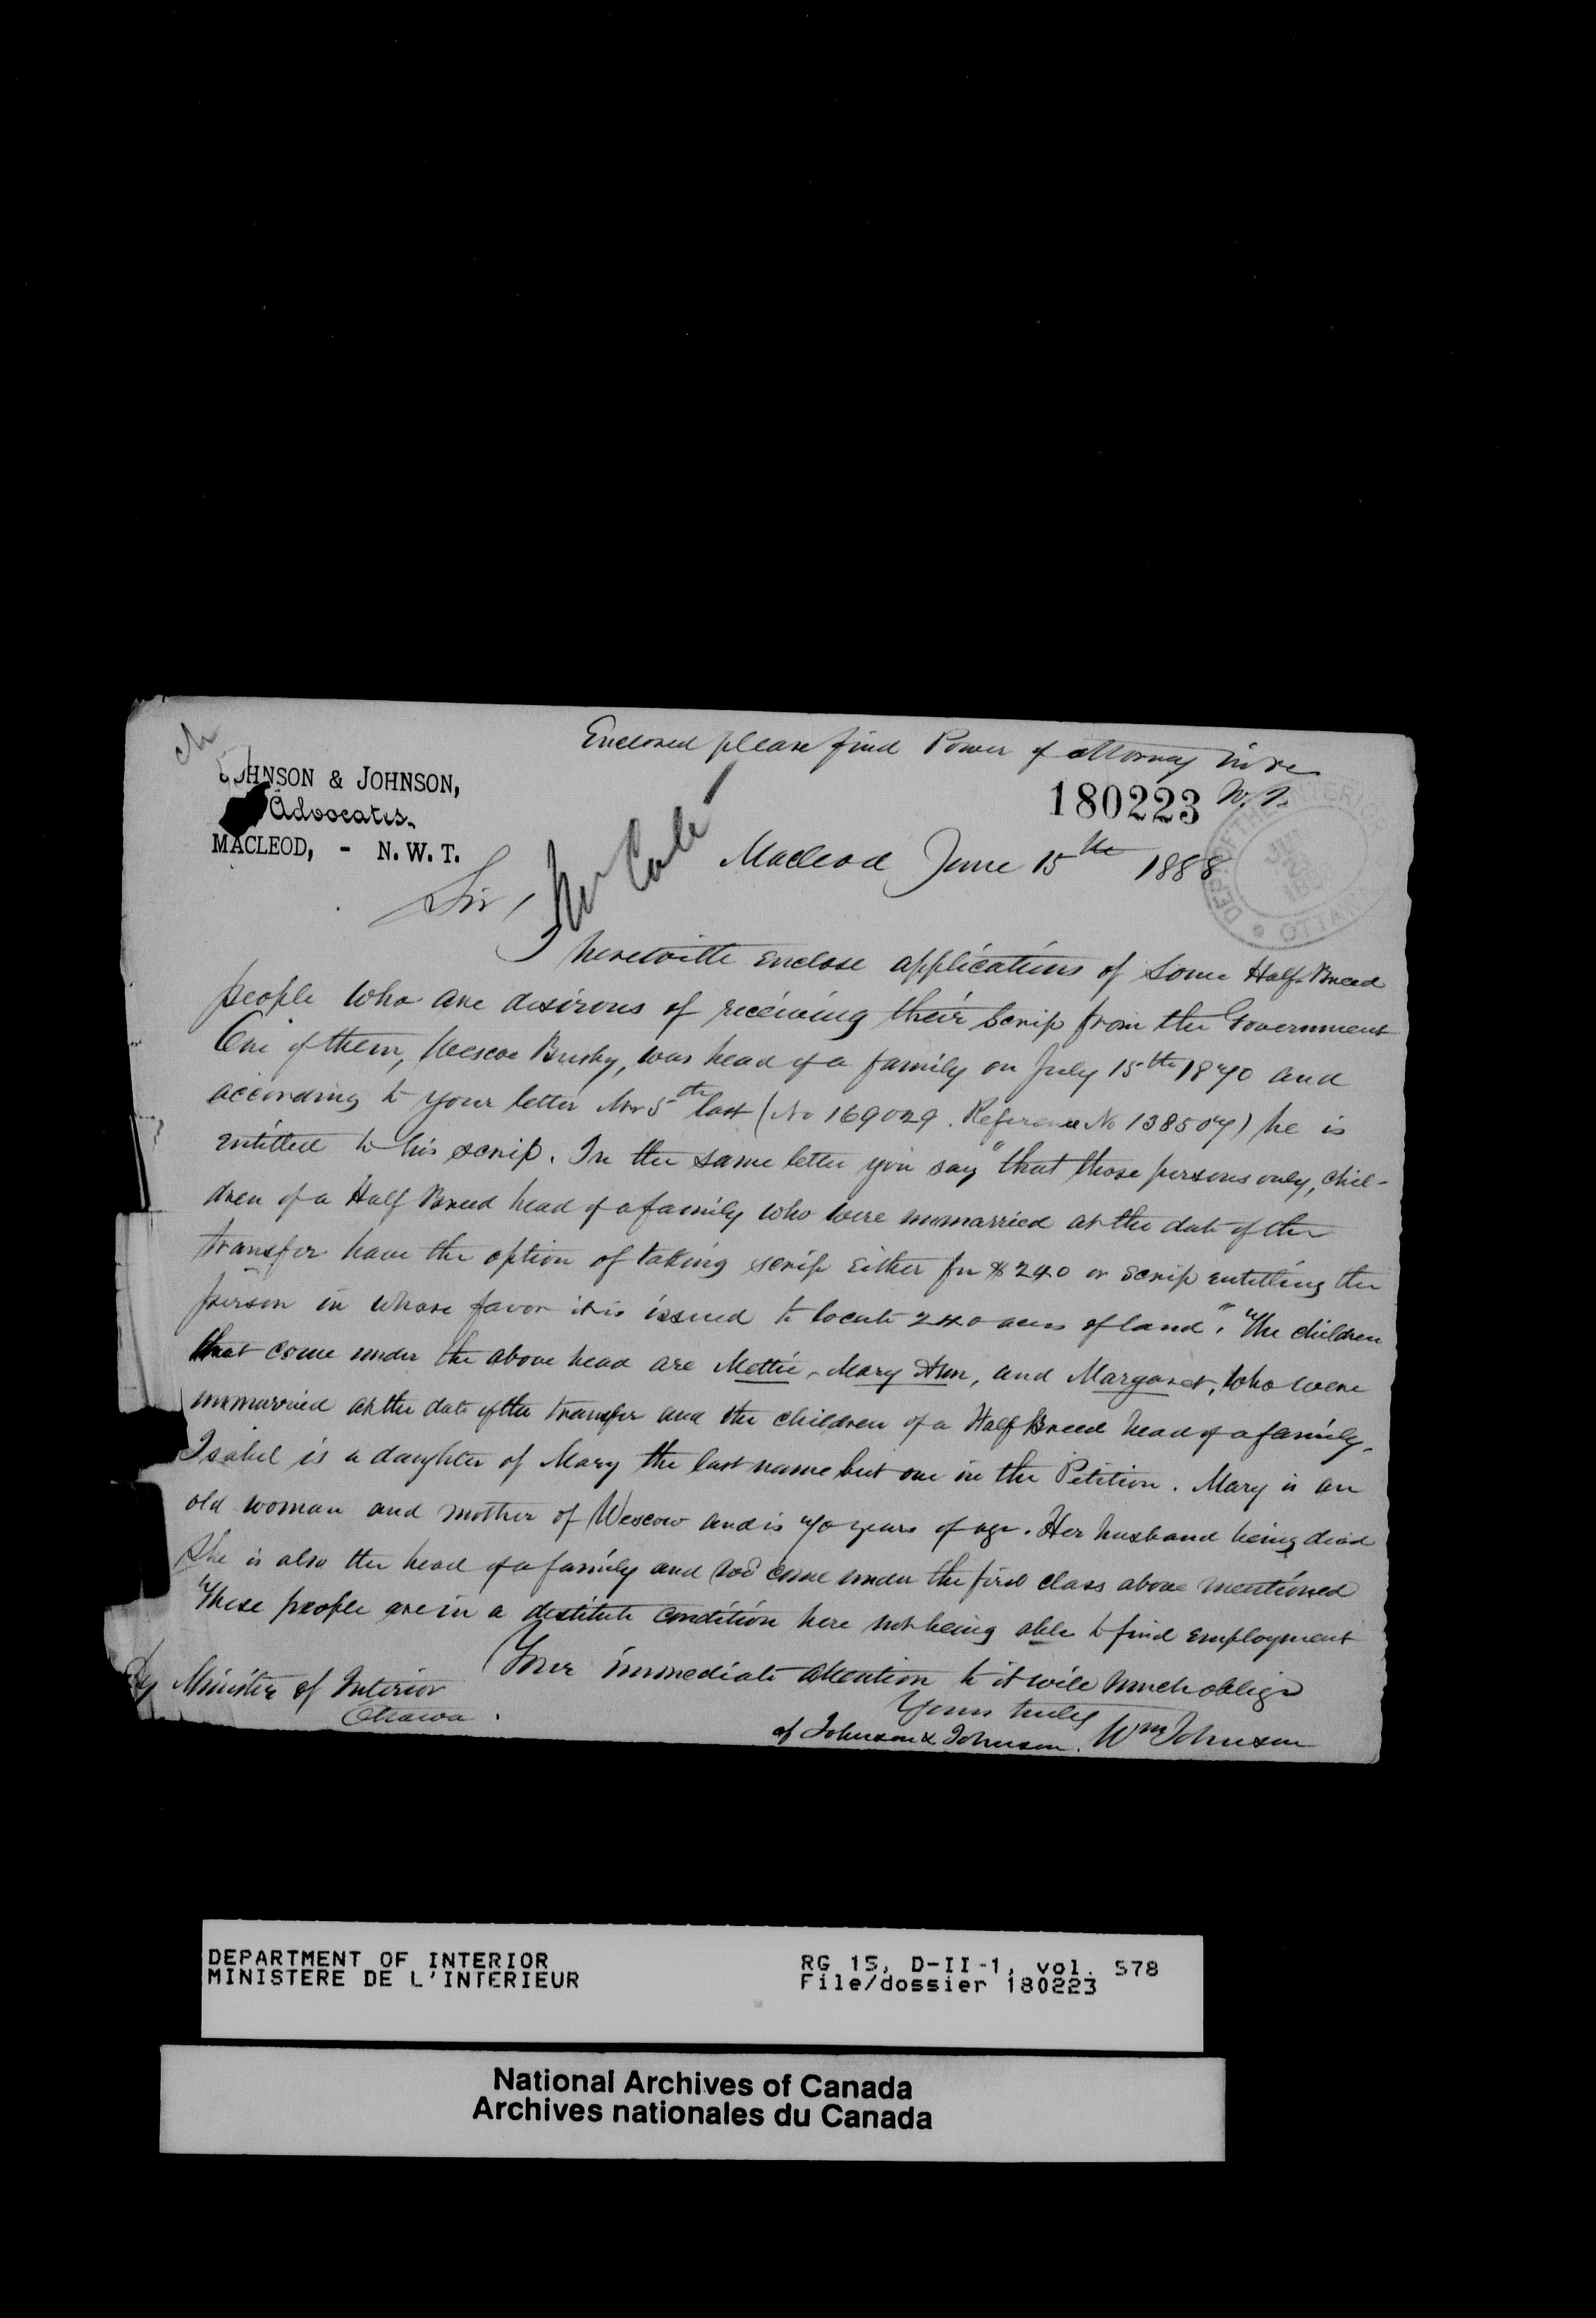 Enclosed please find Power of attorney
JOHNSON & JOHNSON,
Advocates.
MACLEOD, - N.W.T.
180223
DEPT. OF THE INTERIOR
OTTAWA
Macleod June 15th 1888
Sir,
I herewith enclose applications of some Half-Breed
people who are desirous of receiving their Scrip from the Government
One of them, Wescoe Bushy, was head of a family on July 15th 1870 and
according to your letter 5th last (No 169029. Reference No 138507) he is
entitled to his scrip. In the same letter you say "that those persons only, chil-
dren of a Half Breed head of a family who were unmarried at the date of the
transfer have the option of taking scrip either for $240 or scrip entitling the
person in whose favor it is issued to locate 240 acres of land". The children
that come under the above head are Mettie, Mary Ann, and Margaret, who were
unmarried at the date of the transfer and the children of a Half Breed head of a family.
Isabel is a daughter of Mary the last name but one in the Petition. Mary is an
old woman and mother of Wescow and is 70 years of age. Her husband being dead
she is also the head of a family and wd come under the first class above mentioned
These people are in a destitute condition here not being able to find employment
Your immediate attention to it will much oblige
Dy Minister of Interior
Ottawa.
Yours truly
of Johnson & Johnson. Wm Johnson
DEPARTMENT OF INTERIOR
MINISTERE DE L'INTERIEUR
RG 15, D-II-1, vol. 578
File/dossier 180223
National Archives of Canada
Archives nationales du Canada